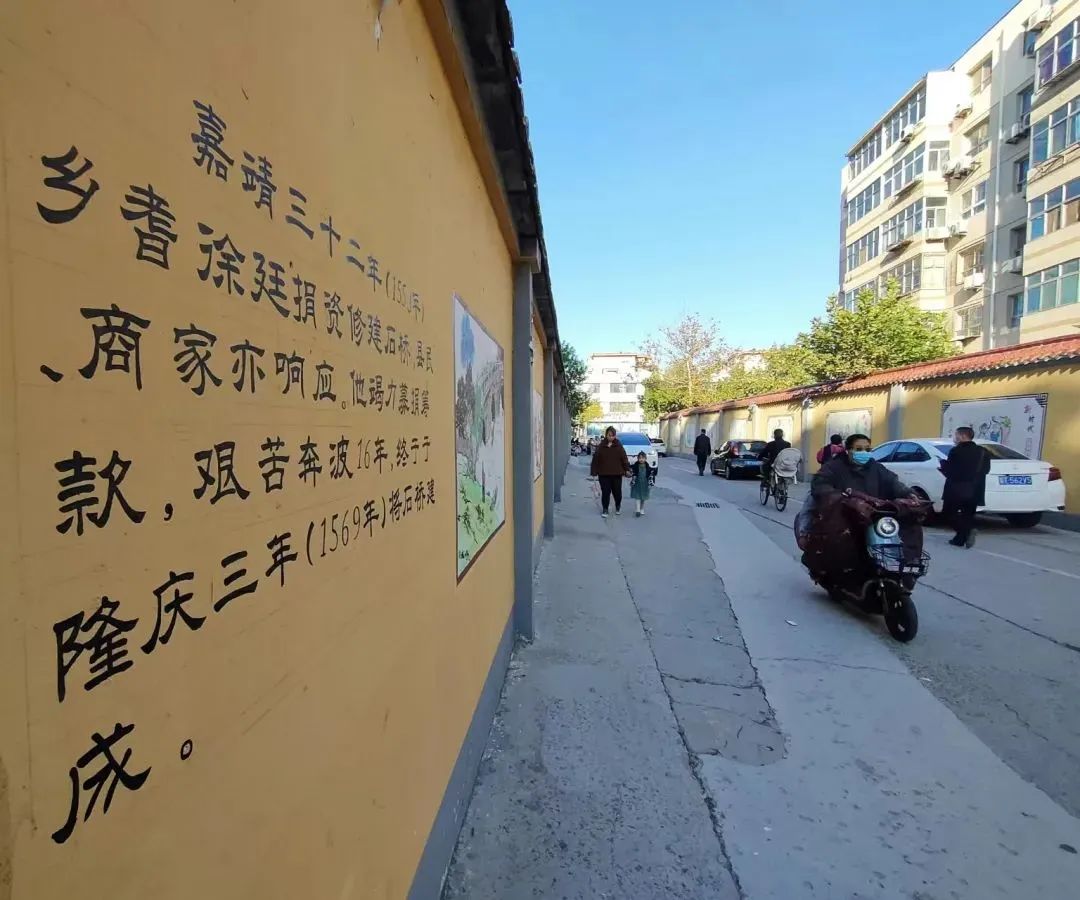 嘉靖三十二年
乡耆徐廷捐资修建石桥,县民
、商家亦响应。他竭力募捐筹
款,艰苦奔波16年,终于于
隆庆三年(1569年)将石桥建
成。
新时代